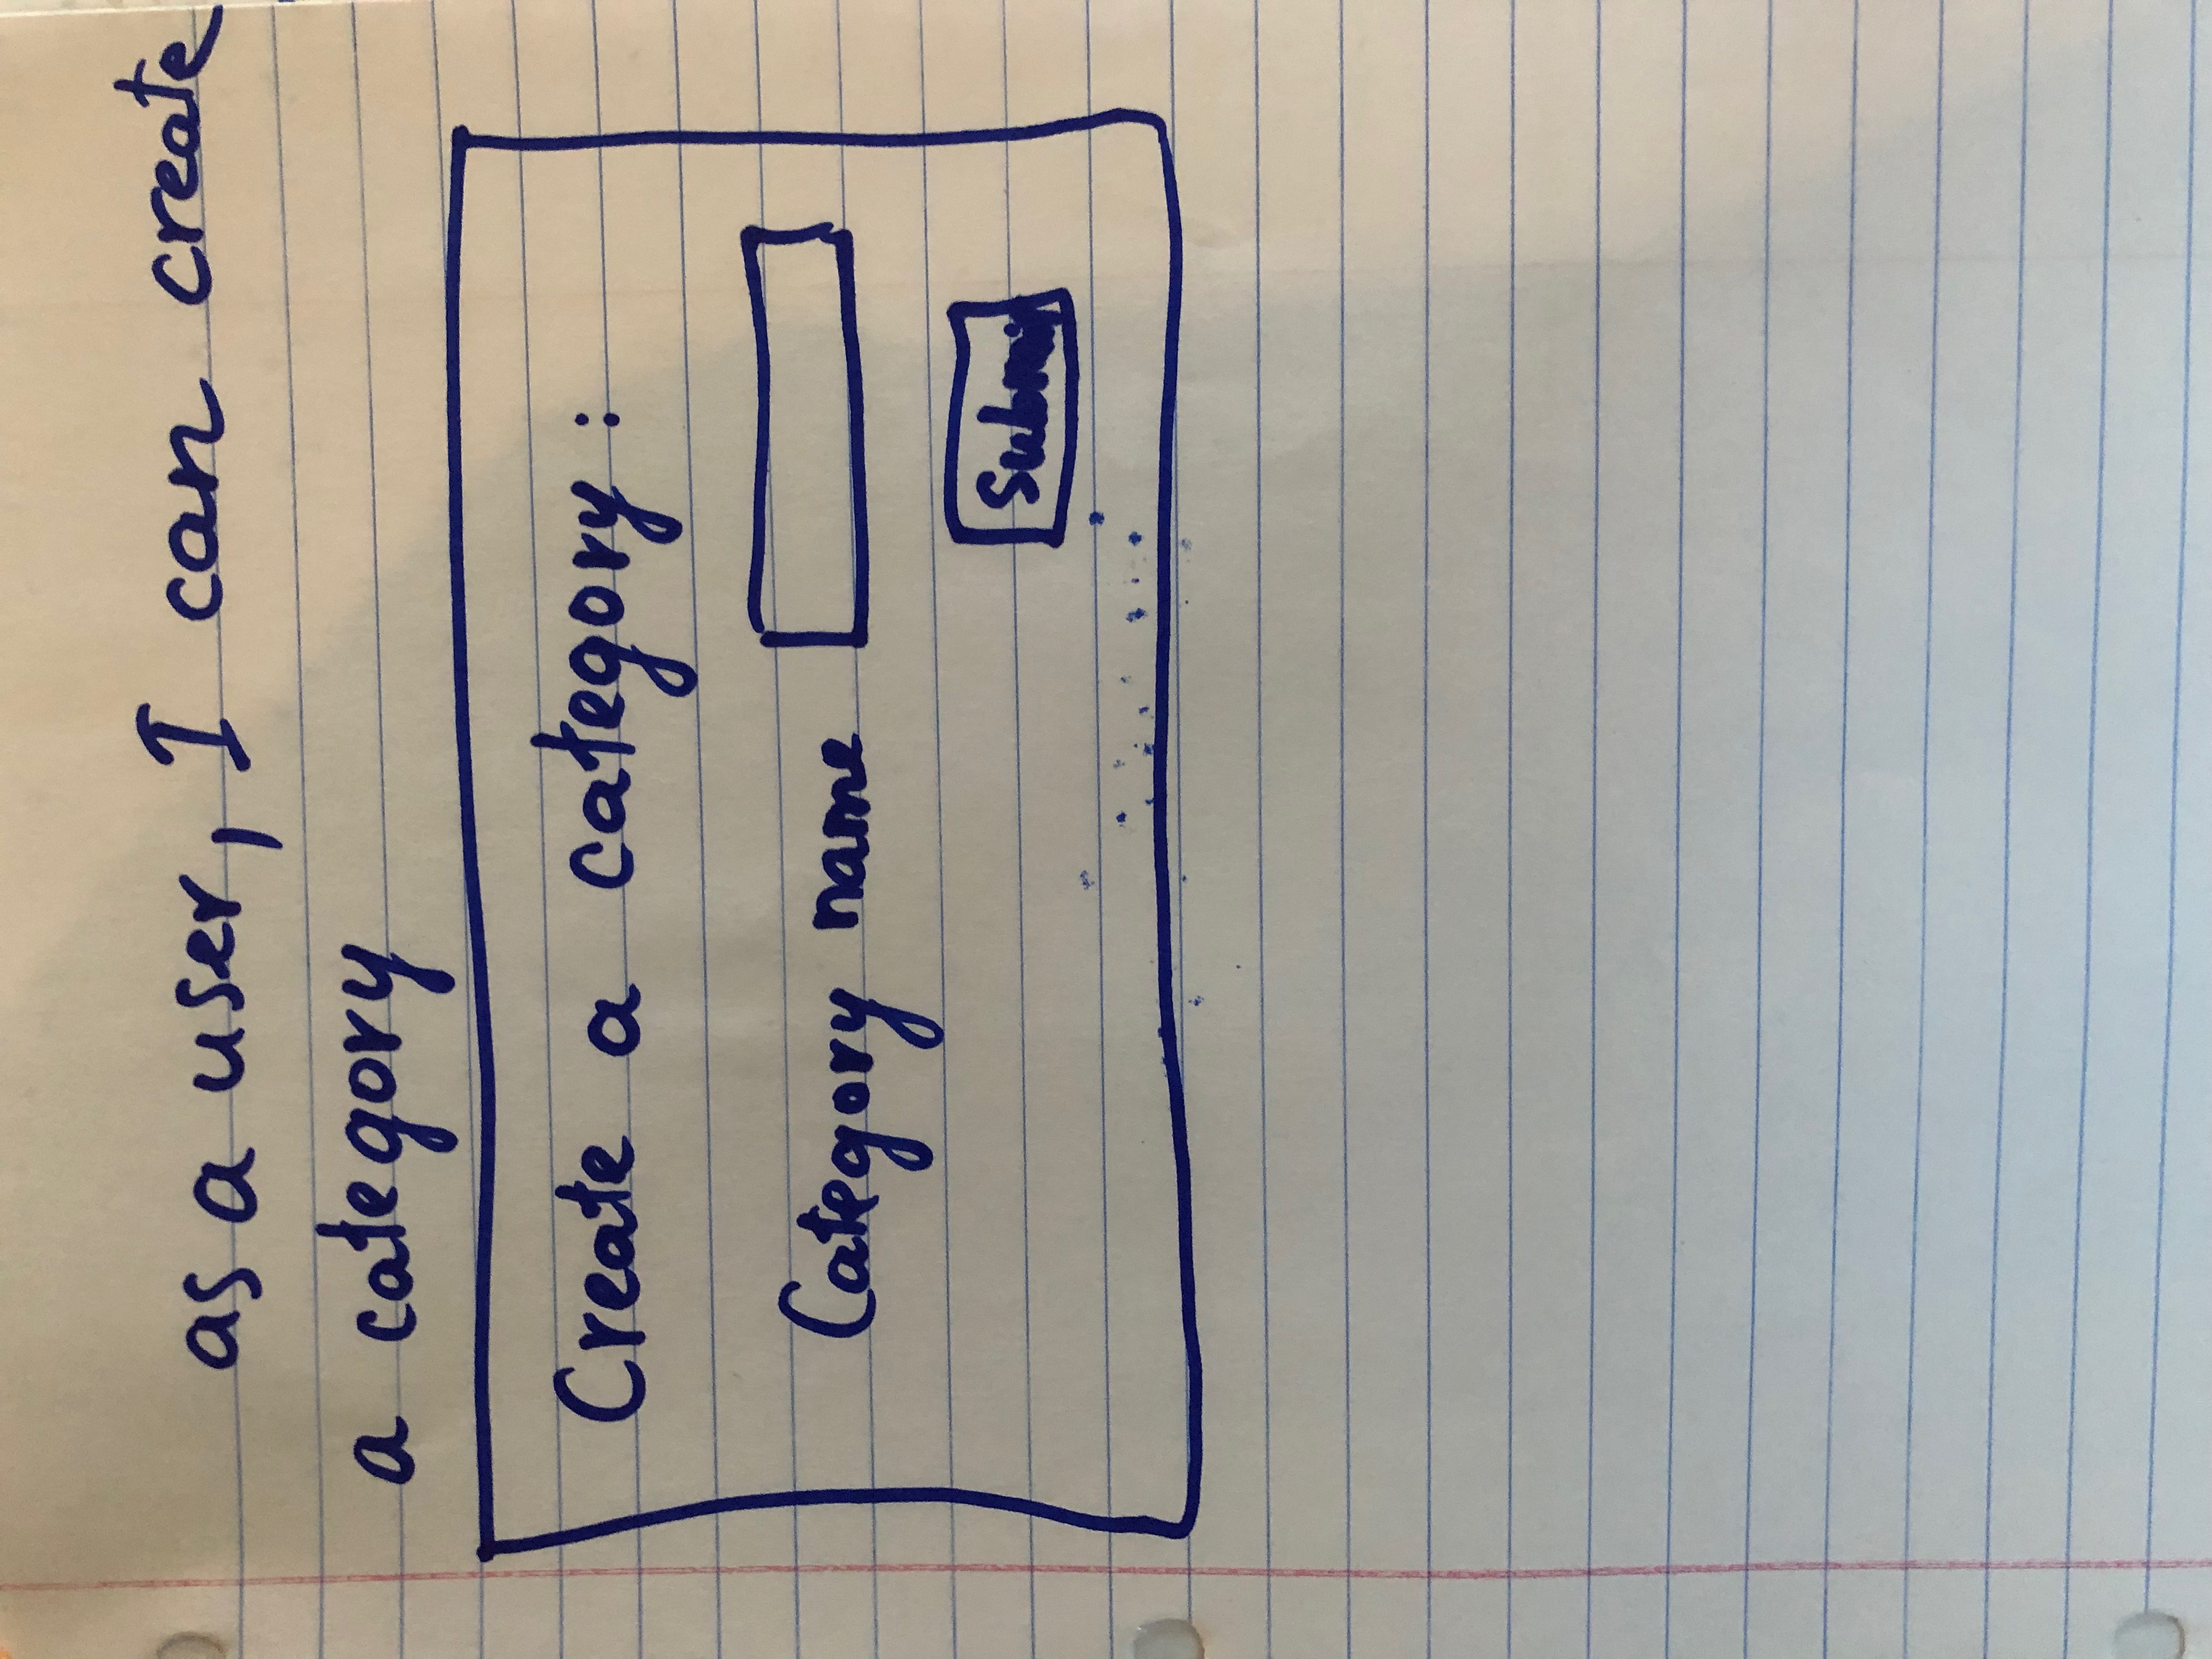 as a user, I can create
a category
Create a category:
Category name
Submit